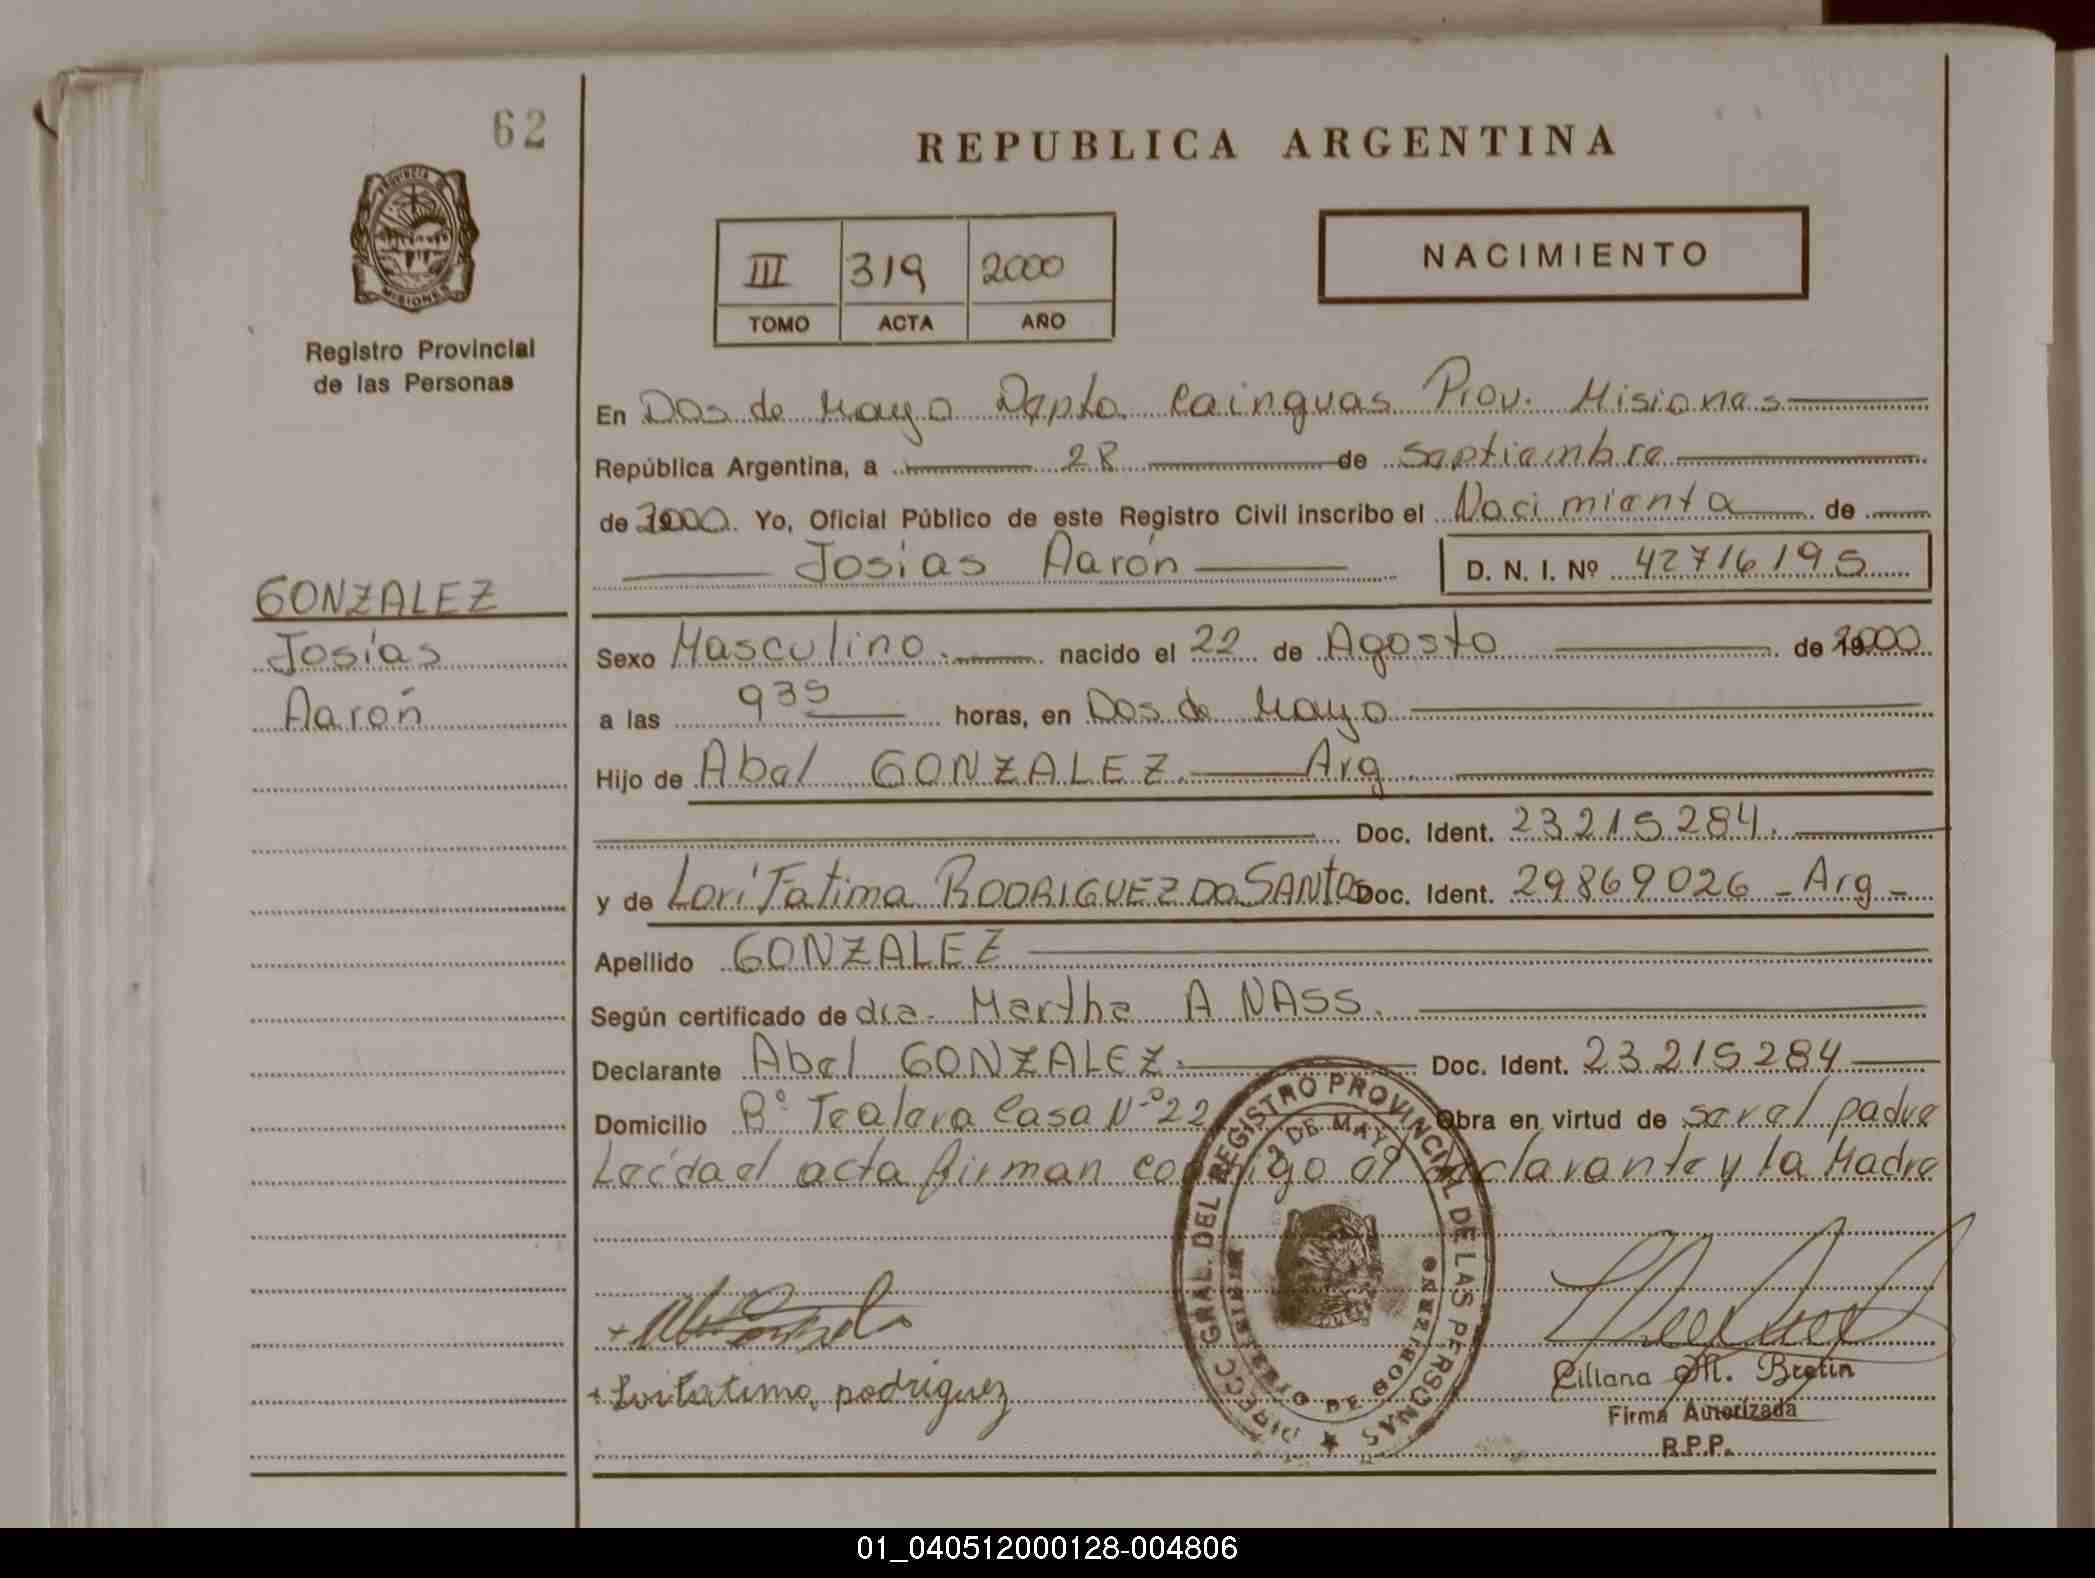 62
REPUBLICA ARGENTINA
PROVINCIA DE
MISIONES
Registro Provincial
de las Personas
III 319 2000
TOMO ACTA AÑO
NACIMIENTO
En Dos de Mayo Depto Cainguas Prov. Misiones
República Argentina, a 28 de Septiembre
de 2000. Yo, Oficial Público de este Registro Civil inscribo el Nacimiento de
Josías Aarón D. N. I. Nº 42716195
GONZALEZ
Josías
Aarón
Sexo Masculino. nacido el 22 de Agosto de 2000
a las 935 horas, en Dos de Mayo
Hijo de Abel GONZALEZ. Arg
Doc. Ident. 23215284.
y de Lori Fatima RODRIGUEZ DO SANTOS Doc. Ident. 29869026 - Arg -
Apellido GONZALEZ
Según certificado de dra. Martha A NASS.
Declarante Abel GONZALEZ. Doc. Ident. 23215284
Domicilio Bº Tealera Casa Nº 22 Obra en virtud de ser el padre
Leída el acta firman conmigo el declarante y la Madre
DIRECC. GRAL. DEL REGISTRO PROVINCIAL DE LAS PERSONAS
2 DE MAYO
MINISTERIO DE GOBIERNO
+ Lori Fatima, rodriguez
Liliana M. Bretin
Firma Autorizada
R.P.P.
01_040512000128-004806